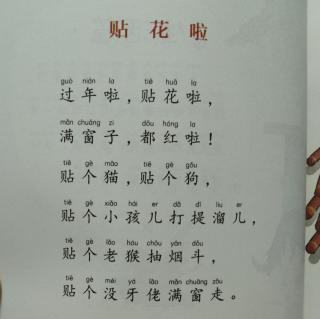 贴花啦
guò nián la tiē huā la
过年啦，贴花啦，
mǎn chuāng zi dōu hóng la
满窗子，都红啦！
tiē gè māo tiē gè gǒu
贴个猫，贴个狗，
tiē gè xiǎo hái er dǎ tí liu er
贴个小孩儿打提溜儿，
tiē gè lǎo hóu chōu yān dǒu
贴个老猴抽烟斗，
tiē gè méi yá lǎo mǎn chuāng zǒu
贴个没牙佬满窗走。